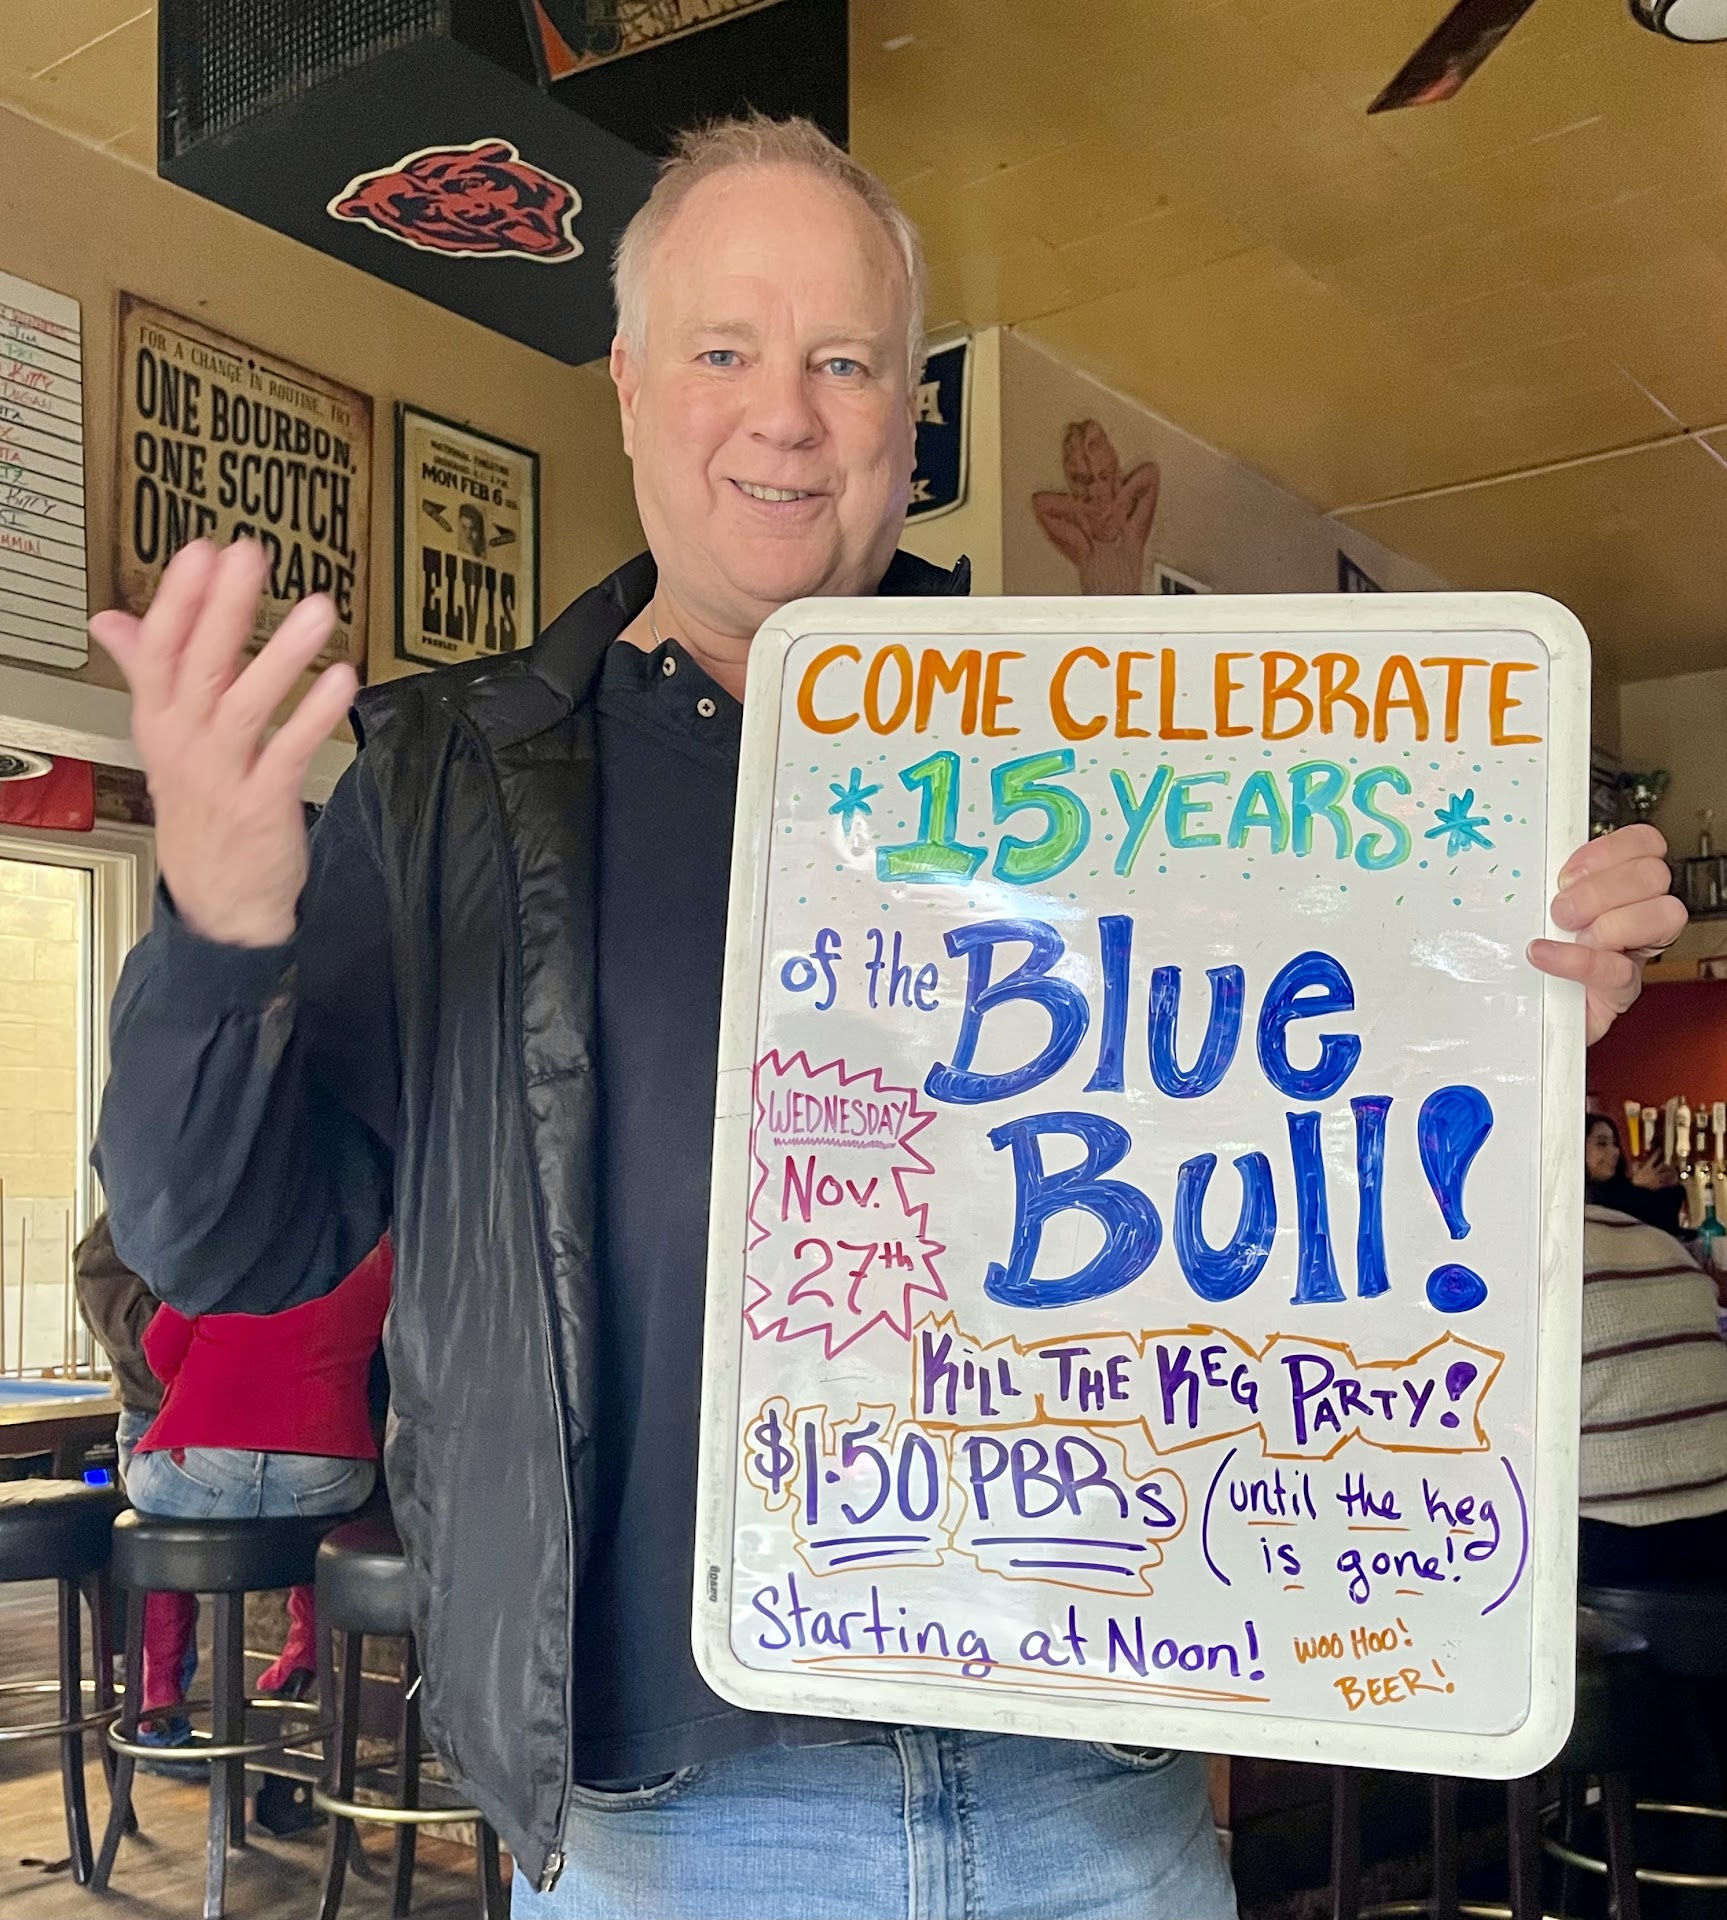 COME CELEBRATE
*15 YEARS*
of the Blue
Bull!
WEDNESDAY
Nov.
27th
KILL THE KEG PARTY!
$1.50 PBRs
(until the keg
is gone!)
Starting at Noon!
WOO HOO!
BEER!
FOR A CHANGE IN ROUTINE, TRY
ONE BOURBON,
ONE SCOTCH,
ONE GRAPE
MON FEB 6
ELVIS
PRESLEY